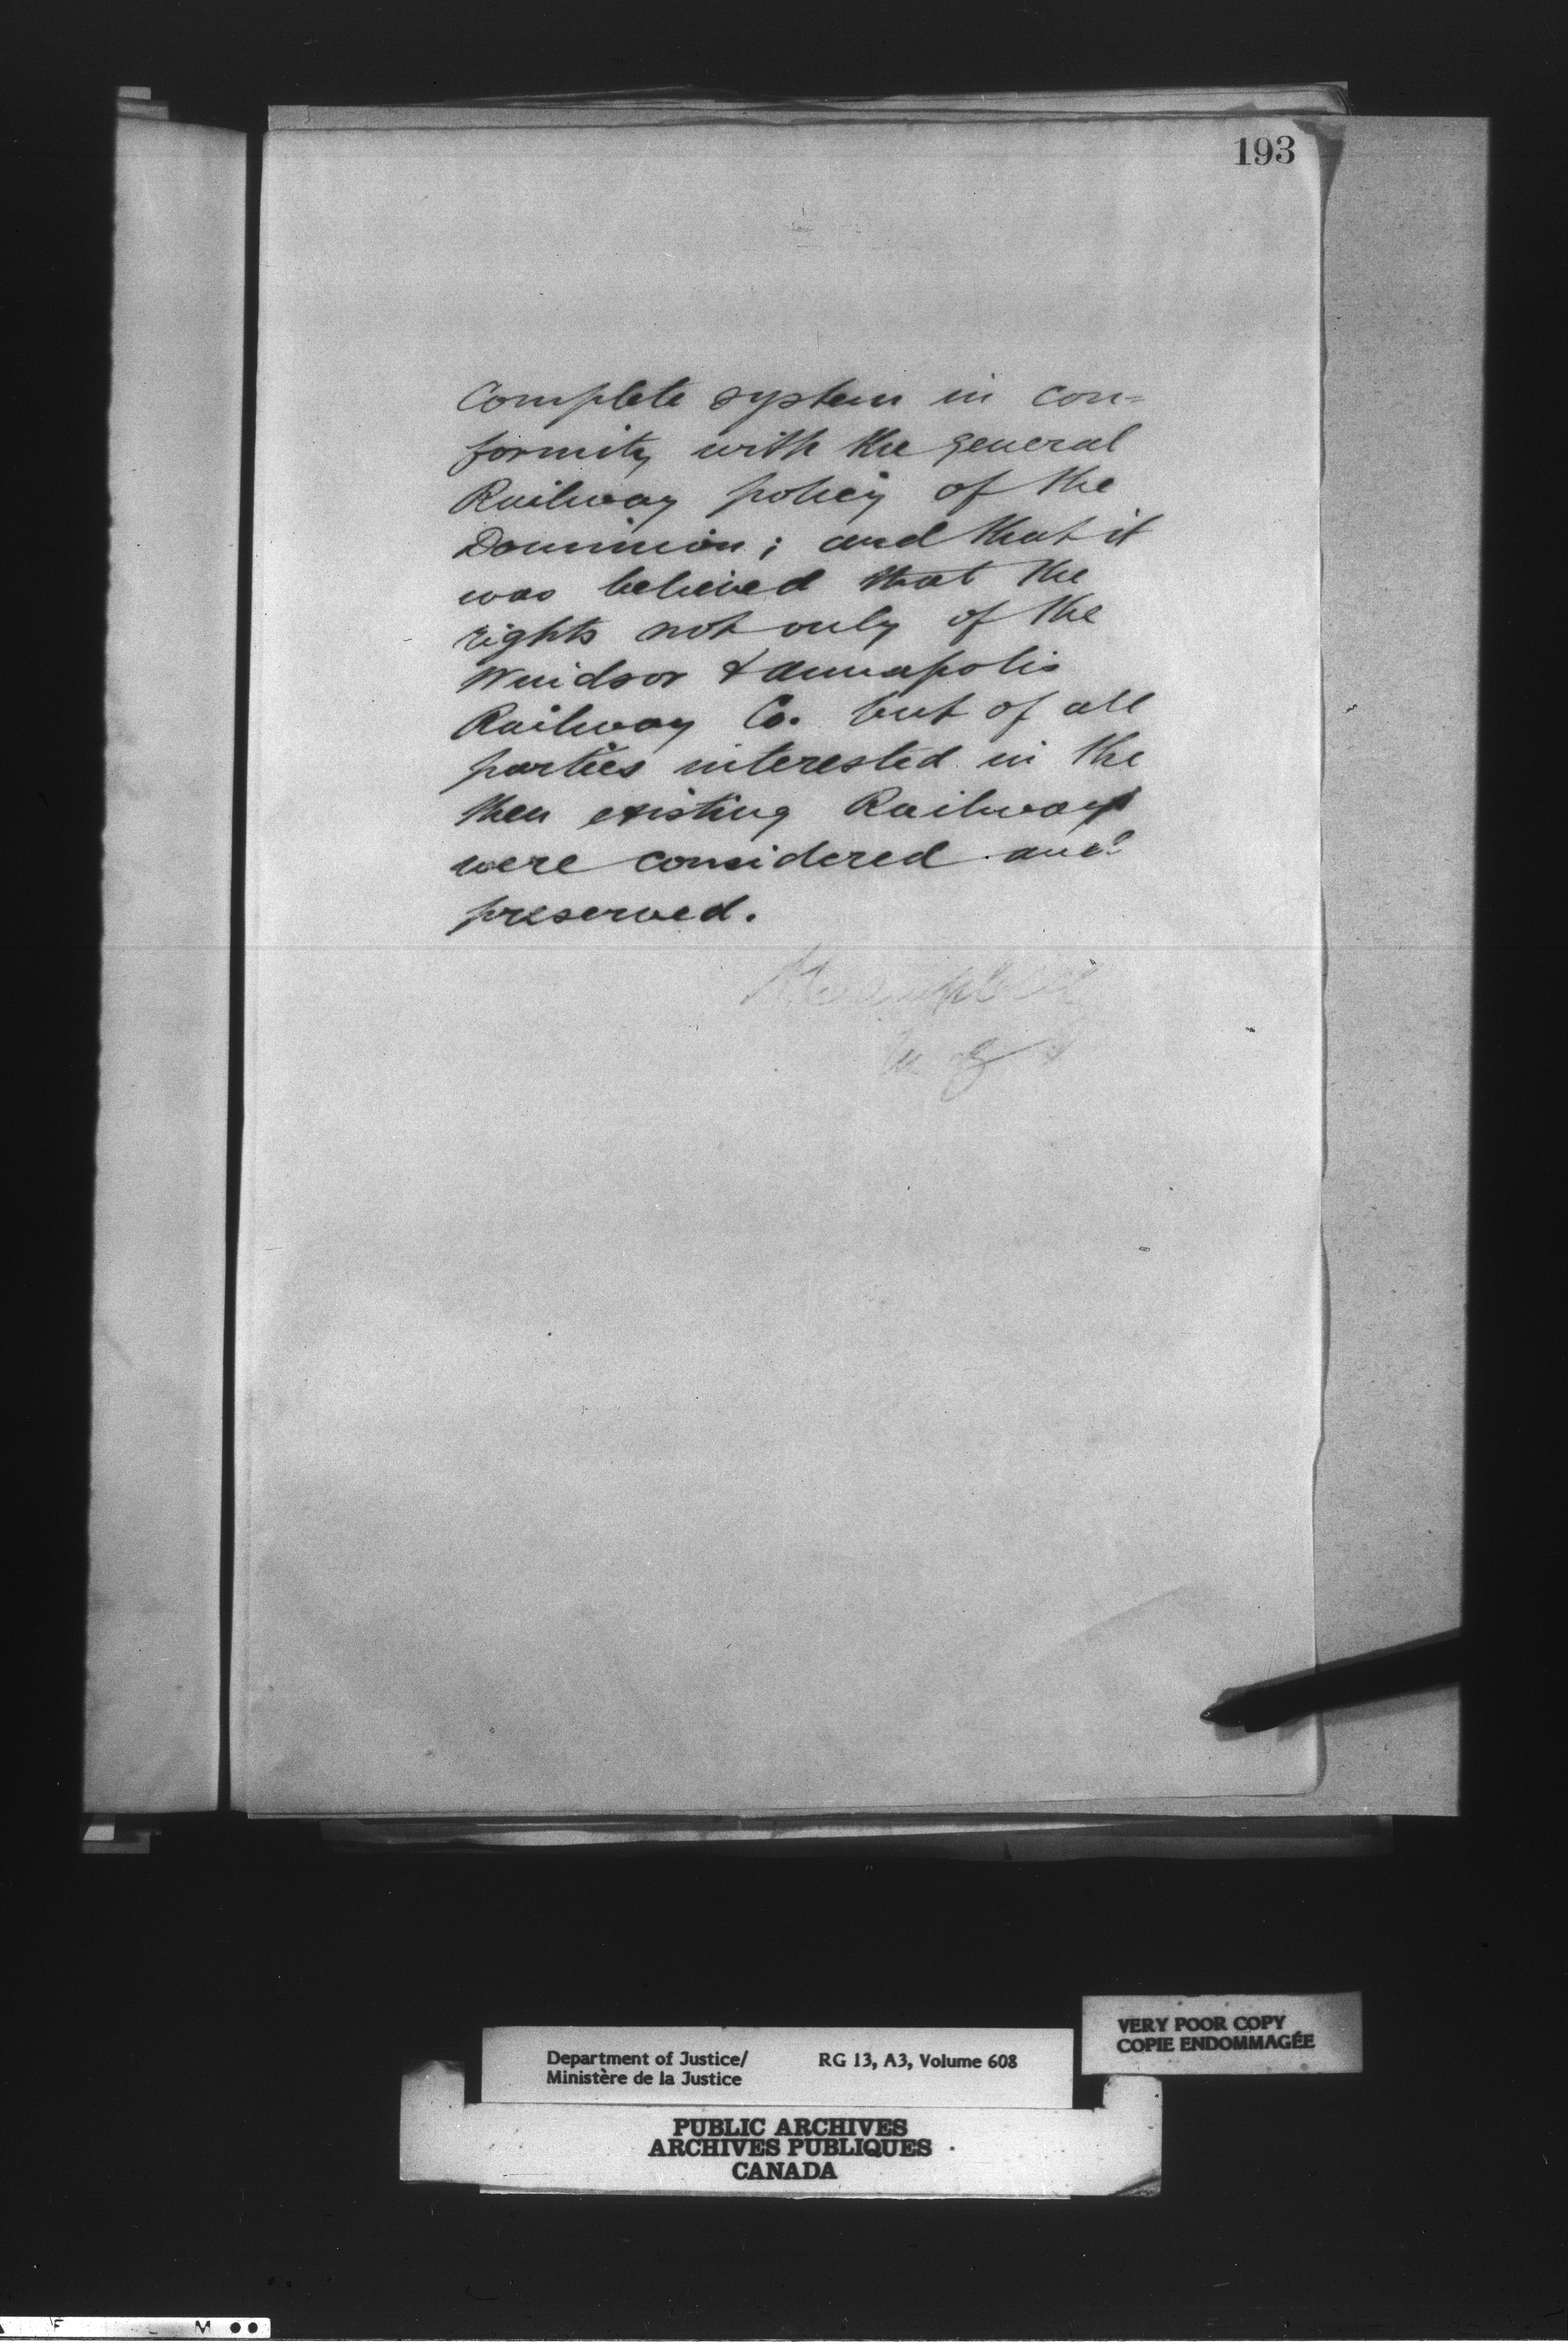 193
Complete system in con=
formity with the general
Railway policy of the
Dominion; and that it
was believed that the
rights not only of the
Windsor & Annapolis
Railway Co. but of all
parties interested in the
then existing Railways
were considered and
preserved.
ACampbell
Department of Justice/
Ministère de la Justice
RG 13, A3, Volume 608
VERY POOR COPY
COPIE ENDOMMAGÉE
PUBLIC ARCHIVES
ARCHIVES PUBLIQUES
CANADA